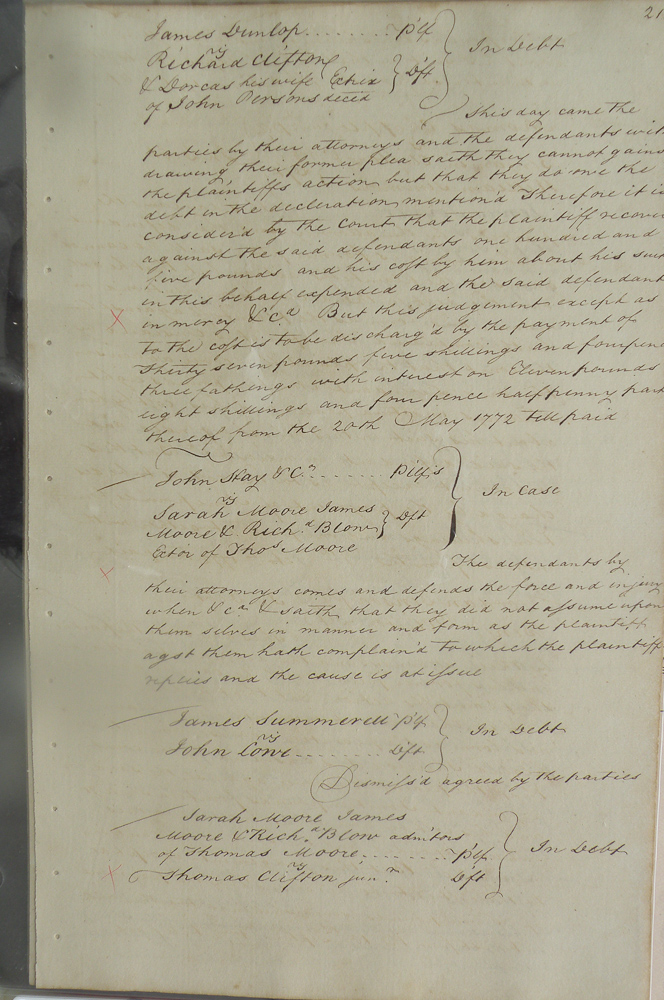 21
James Dunlop . . . . . . . . . Plf
vs
Richard Clifton
& Dorcas his wife Ectrix } Dft } In Debt
of John Persons decd
This day came the
parties by their attorneys and the defendants with
drawing their former plea saith they cannot gains
the plaintiffs action but that they do owe the
debt in the declaration mention'd Therefore it is
consider'd by the court that the plaintiff recover
against the said defendants one hundred and
five pounds and his cost by him about his suit
in this behalf expended and the said defendant
X in mercy &c.a But this judgement except as
to the cost is to be discharg'd by the payment of
Thirty seven pounds five shillings and fourpence
three fathings with interest on Eleven pounds
eight shillings and four pence halfpenny part
thereof from the 20th May 1772 till paid
John Hay & Co . . . . . . . Plfs
vs
Sarah Moore James
Moore & Rich.d Blow } Dft } In Case
Ector of Thos Moore
The defendants by
X
their attorneys comes and defends the force and injury
when &ca & saith that they did not assume upon
them selves in manner and form as the plaintiff
agst them hath complain'd to which the plaintiff
replies and the cause is at issue
James Summerell Plf
vs } In Debt
John Lowe . . . . . . . . . Dft
Dismiss'd agreed by the parties
Sarah Moore James
Moore & Rich.d Blow admitors
of Thomas Moore . . . . . . . . Plf } In Debt
vs
X Thomas Clifton jun.r Dft